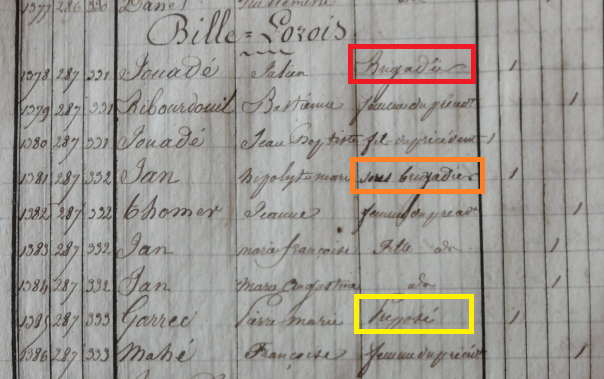 1377 286 330 Danet
Bille=Lorois
1378 287 331 Jouadé Julien Brigadier 1
1379 287 331 Ribourdouil Bastienne femme du précéd^t 1
1380 287 331 Jouadé Jean Baptiste fils du précédent 1
1381 287 332 Jan Hipolyte marie sous brigadier 1
1382 287 332 Thomer Jeanne femme du précéd^t 1
1383 287 332 Jan marie françoise fille do 1
1384 287 332 Jan marie augustine do 1
1385 287 333 Garrec Pierre marie Préposé 1
1386 287 333 Mahé Françoise femme du précéd^t 1